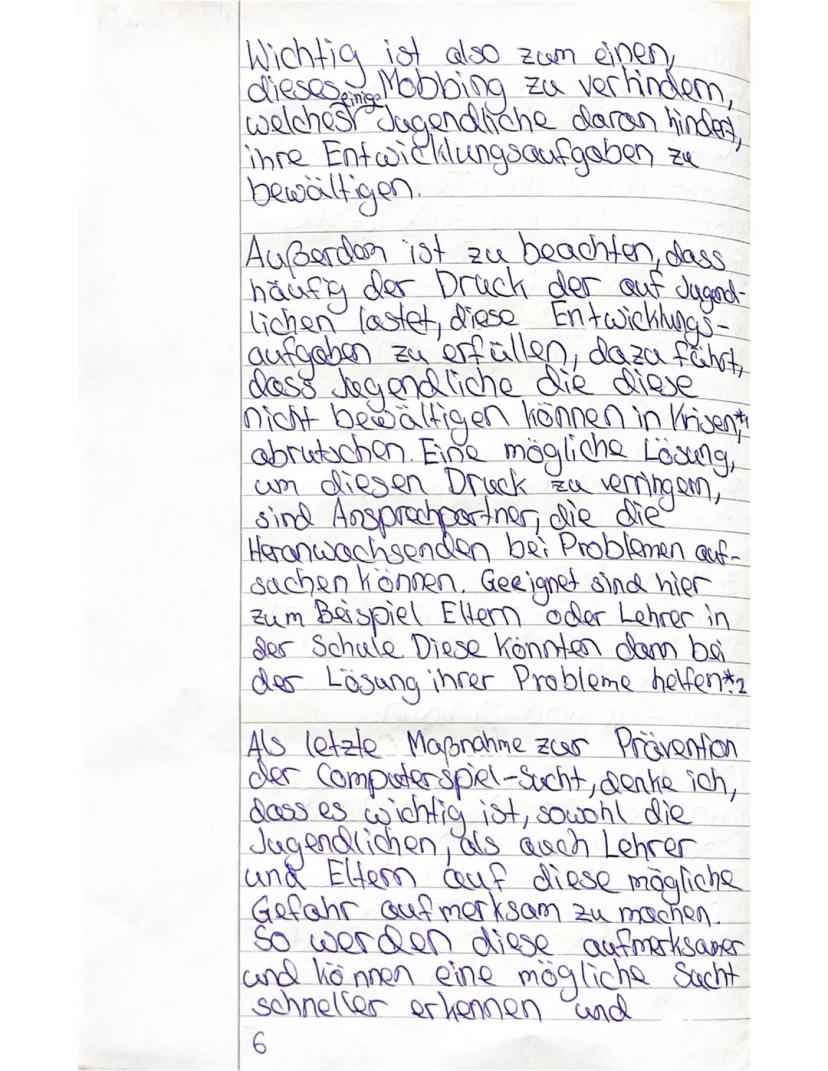 Wichtig ist also zum einen,
dieses Mobbing zu verhindern,
welches einige Jugendliche daran hindert,
ihre Entwicklungsaufgaben zu
bewältigen.
Außerdem ist zu beachten, dass
häufig der Druck der auf Jugend-
lichen lastet, diese Entwicklungs-
aufgaben zu erfüllen, dazu führt,
dass Jugendliche die diese
nicht bewältigen können in Krisen*1
abrutschen. Eine mögliche Lösung,
um diesen Druck zu verringern,
sind Ansprechpartner, die die
Heranwachsenden bei Problemen auf-
suchen können. Geeignet sind hier
zum Beispiel Eltern oder Lehrer in
der Schule. Diese könnten dann bei
der Lösung ihrer Probleme helfen.*2
Als letzte Maßnahme zur Prävention
der Computerspiel-Sucht, denke ich,
dass es wichtig ist, sowohl die
Jugendlichen, als auch Lehrer
und Eltern auf diese mögliche
Gefahr aufmerksam zu machen.
So werden diese aufmerksamer
und können eine mögliche Sucht
schneller erkennen und
6